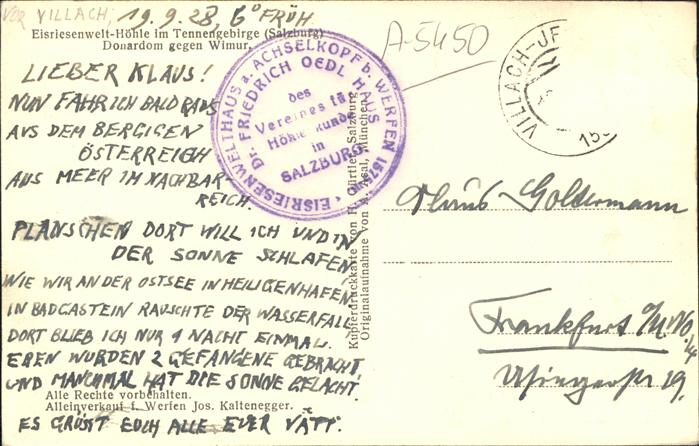 VOR VILLACH, 19.9.28, 6° FRÜH.
Eisriesenwelt-Höhle im Tennengebirge (Salzburg)
Donardom gegen Wimur.
LIEBER KLAUS!
NUN FAHR ICH BALD RAUS
AUS DEM BERGIGEN
ÖSTERREICH
AUS MEER IM NACHBAR-
REICH.
PLANSCHEN DORT WILL ICH UND IN
DER SONNE SCHLAFEN
WIE WIR AN DER OSTSEE IN HEILIGENHAFEN.
IN BADGASTEIN RAUSCHTE DER WASSERFALL
DORT BLIEB ICH NUR 1 NACHT EINMAL.
EBEN WURDEN 2 GEFANGENE GEBRACHT,
UND MANCHMAL HAT DIE SONNE GELACHT.
Alle Rechte vorbehalten.
Alleinverkauf f. Werfen Jos. Kaltenegger.
ES GRÜSST EUCH ALLE EUER VATI.
EISRIESENWELTHAUS a. ACHSELKOPF b. WERFEN 1575m
Dr. FRIEDRICH OEDL HAUS
des
Vereines für
Höhlenkunde
in
SALZBURG.
Kupferdruckkarte von H. Gürtler, Salzburg
Originalaufnahme von München
A-5450
VILLACH-
Klaus Goltermann
Frankfurt a/M.
Usingerstr 19.